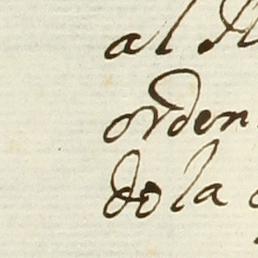 al
orden
do la